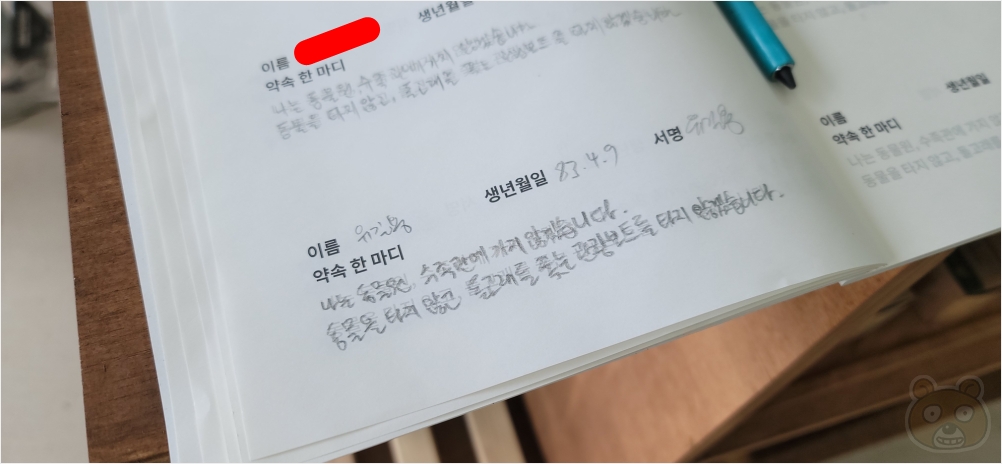 생년월일
이름
약속 한 마디
나는 동물원, 수족관에 가지 않겠습니다.
동물을 타지 않고, 돌고래를 쫓는 관광보트를 타지 않겠습니다.
생년월일 83.4.9 서명
이름
약속 한 마디
나는 동물원, 수족관에 가지 않겠습니다.
동물을 타지 않고, 돌고래를 쫓는 관광보트를 타지 않겠습니다.
생년월일
이름
약속 한 마디
나는 동물원, 수족관에 가지
동물을 타지 않고, 돌고래를